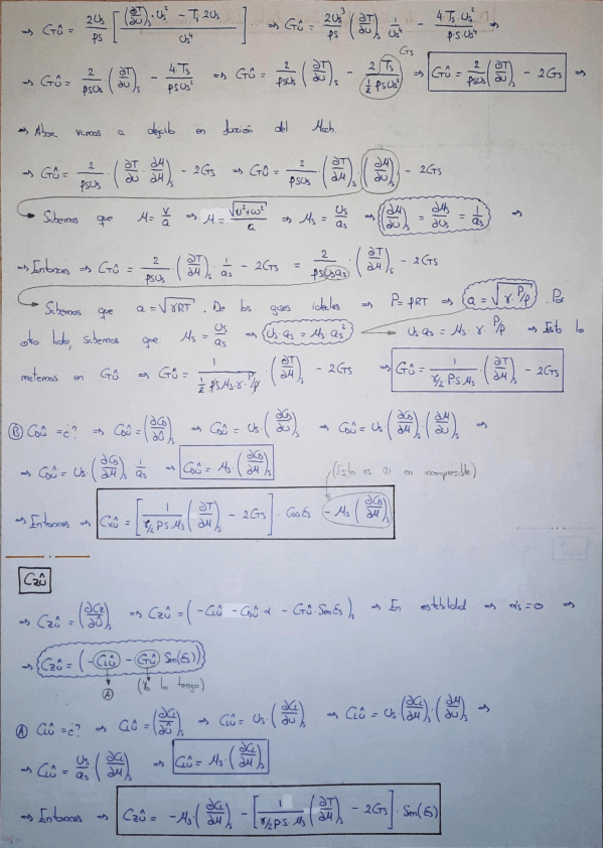 ⇒ C_Tû = 2Us/ρS [ ((∂T/∂u)s · Us² − Ts 2Us) / Us⁴ ] ⇒ C_Tû = 2Us³/ρS (∂T/∂u)s 1/Us⁴ − 4Ts·Us²/ρS·Us⁴ ⇒
⇒ C_Tû = 2/ρSUs (∂T/∂u)s − 4Ts/ρSUs² ⇒ C_Tû = 2/ρSUs (∂T/∂u)s − 2Ts/(½ρSUs²) C_Ts ⇒ C_Tû = 2/ρSUs (∂T/∂u)s − 2C_Ts ⇒
⇒ Ahora vamos a dejarlo en función del Mach.
⇒ C_Tû = 2/ρSUs · (∂T/∂u · ∂M/∂M)s − 2C_Ts ⇒ C_Tû = 2/ρSUs · (∂T/∂M)s · (∂M/∂u)s − 2C_Ts
Sabemos que M = V/a ⇒ M = √(u²+w²)/a ⇒ Ms = Us/as ⇒ (∂M/∂u)s = ∂Ms/∂Us = 1/as ⇒
⇒ Entonces ⇒ C_Tû = 2/ρSUs · (∂T/∂M)s · 1/as − 2C_Ts = 2/ρSUsas · (∂T/∂M)s − 2C_Ts
Sabemos que a = √γRT. De los gases ideales ⇒ P = ρRT ⇒ a = √γ·P/ρ. Por
otro lado, sabemos que Ms = Us/as ⇒ Us as = Ms as² Us as = Ms · γ · P/ρ ⇒ Esto lo
metemos en C_Tû ⇒ C_Tû = 1/(½ρS Ms·γ·P/ρ) · (∂T/∂M)s − 2C_Ts ⇒ C_Tû = 1/(γ/2 PS Ms) · (∂T/∂M)s − 2C_Ts
Ⓑ C_Dû = ¿? ⇒ C_Dû = (∂C_D/∂û)s ⇒ C_Dû = Us · (∂C_D/∂u)s ⇒ C_Dû = Us (∂C_D/∂M)s · (∂M/∂u)s ⇒
⇒ C_Dû = Us · (∂C_D/∂M)s 1/as ⇒ C_Dû = Ms · (∂C_D/∂M)s (Esto es 0 en incompresible)
⇒ Entonces ⇒ C_Xû = [1/(γ/2 PS Ms) · (∂T/∂M)s − 2C_Ts] · Cos Es − Ms (∂C_D/∂M)s
C_Zû
⇒ C_Zû = (∂C_Z/∂û)s ⇒ C_Zû = (−C_Lû − C_Dû α − C_Tû · Sen Es)s ⇒ En estabilidad ⇒ αs = 0 ⇒
⇒ C_Zû = (−C_Lû − C_Tû Sen(Es))
Ⓐ (Ya lo tengo)
Ⓐ C_Lû = ¿? ⇒ C_Lû = (∂C_L/∂û)s ⇒ C_Lû = Us · (∂C_L/∂u)s ⇒ C_Lû = Us · (∂C_L/∂M)s · (∂M/∂u)s ⇒
⇒ C_Lû = Us/as · (∂C_L/∂M)s ⇒ C_Lû = Ms · (∂C_L/∂M)s
⇒ Entonces ⇒ C_Zû = −Ms · (∂C_L/∂M)s − [1/(γ/2 PS · Ms) · (∂T/∂M)s − 2C_Ts] · Sen(Es)